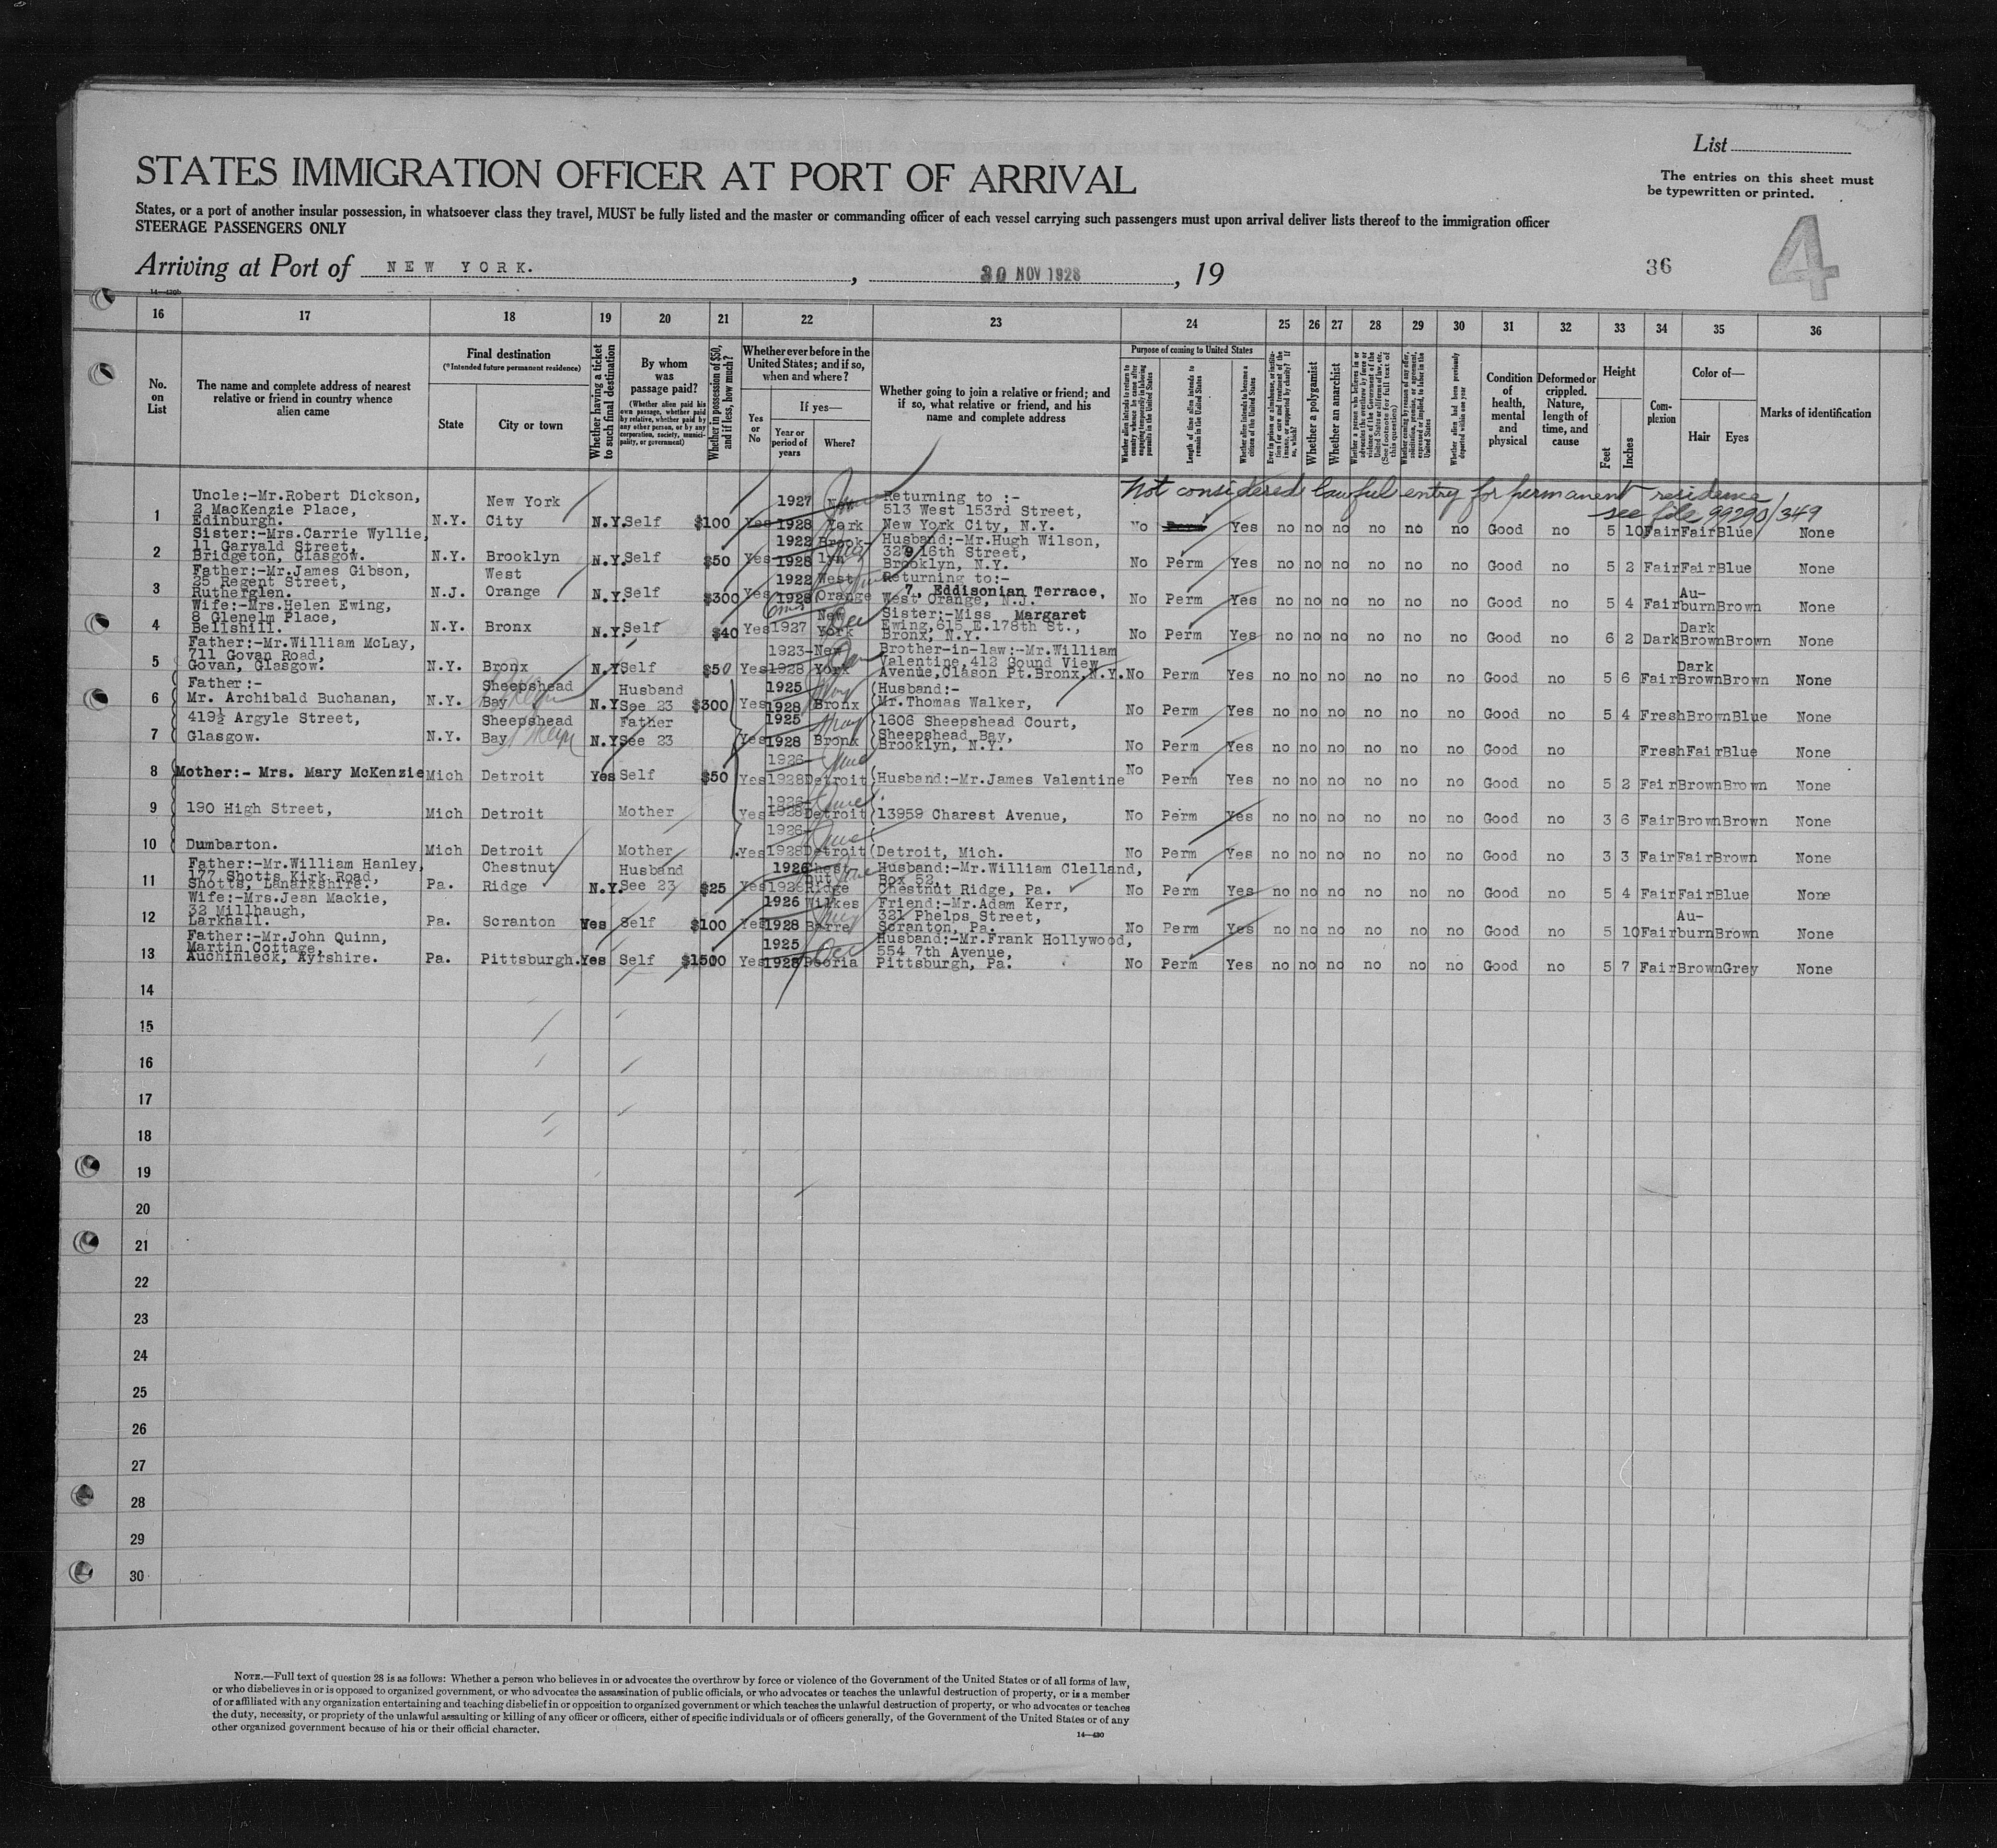 List
The entries on this sheet must
be typewritten or printed.
STATES IMMIGRATION OFFICER AT PORT OF ARRIVAL
States, or a port of another insular possession, in whatsoever class they travel, MUST be fully listed and the master or commanding officer of each vessel carrying such passengers must upon arrival deliver lists thereof to the immigration officer
STEERAGE PASSENGERS ONLY
Arriving at Port of NEW YORK. , 30 NOV 1928 , 19
36
4
14—430b
16 17 18 19 20 21 22 23 24 25 26 27 28 29 30 31 32 33 34 35 36
No. on List
The name and complete address of nearest relative or friend in country whence alien came
Final destination
(*Intended future permanent residence)
State
City or town
Whether having a ticket to such final destination
By whom was passage paid?
(Whether alien paid his own passage, whether paid by relative, whether paid by any other person, or by any corporation, society, municipality, or government)
Whether in possession of $50, and if less, how much?
Whether ever before in the United States; and if so, when and where?
Yes or No
If yes—
Year or period of years
Where?
Whether going to join a relative or friend; and if so, what relative or friend, and his name and complete address
Purpose of coming to United States
Whether alien intends to return to country whence he came after engaging temporarily in laboring pursuits in the United States
Length of time alien intends to remain in the United States
Whether alien intends to become a citizen of the United States
Ever in prison or almshouse, or institution for care and treatment of the insane, or supported by charity? If so, which?
Whether a polygamist
Whether an anarchist
Whether a person who believes in or advocates the overthrow by force or violence of the Government of the United States or all forms of law, etc. (See footnote for full text of this question)
Whether coming by reason of any offer, solicitation, promise, or agreement, expressed or implied, to labor in the United States
Whether alien had been previously deported within one year
Condition of health, mental and physical
Deformed or crippled. Nature, length of time, and cause
Height
Feet
Inches
Complexion
Color of—
Hair
Eyes
Marks of identification
Not considered lawful entry for permanent residence
see file 99290/349
1 Uncle:-Mr.Robert Dickson, 2 MacKenzie Place, Edinburgh. N.Y. New York City N.Y. Self $100 Yes 1927 1928 New York Returning to :- 513 West 153rd Street, New York City, N.Y. No Perm Yes no no no no no no Good no 5 10 Fair Fair Blue None
2 Sister:-Mrs.Carrie Wyllie, 11 Garvald Street, Bridgeton, Glasgow. N.Y. Brooklyn N.Y. Self $50 Yes 1922 1928 Brooklyn Husband:-Mr.Hugh Wilson, 329 16th Street, Brooklyn, N.Y. No Perm Yes no no no no no no Good no 5 2 Fair Fair Blue None
3 Father:-Mr.James Gibson, 25 Regent Street, Rutherglen. N.J. West Orange N.Y. Self $300 Yes 1922 1928 West Orange Returning to:- 7, Eddisonian Terrace, West Orange, N.J. No Perm Yes no no no no no no Good no 5 4 Fair Au-burn Brown None
4 Wife:-Mrs.Helen Ewing, 8 Glenelm Place, Bellshill. N.Y. Bronx N.Y. Self $40 Yes 6mos 1927 New York Dec Sister:-Miss Margaret Ewing, 615 E.178th St., Bronx, N.Y. No Perm Yes no no no no no no Good no 6 2 Dark Dark Brown Brown None
5 Father:-Mr.William McLay, 711 Govan Road, Govan, Glasgow. N.Y. Bronx N.Y. Self $50 Yes 1923-1928 New York Brother-in-law:-Mr.William Valentine, 412 Gound View Avenue, Clason Pt. Bronx, N.Y. No Perm Yes no no no no no no Good no 5 6 Fair Dark Brown Brown None
6 Father:- Mr. Archibald Buchanan, N.Y. Sheepshead Bay N.Y. Husband See 23 $300 Yes 1925 1928 Bronx Husband:- Mr.Thomas Walker, No Perm Yes no no no no no no Good no 5 4 Fresh Brown Blue None
7 419½ Argyle Street, Glasgow. N.Y. Sheepshead Bay N.Y. Father See 23 Yes 1925 1928 Bronx 1606 Sheepshead Court, Sheepshead Bay, Brooklyn, N.Y. No Perm Yes no no no no no no Good no Fresh Fair Blue None
8 Mother:- Mrs. Mary McKenzie Mich Detroit Yes Self $50 Yes 1926-1928 Detroit June Husband:-Mr.James Valentine No Perm Yes no no no no no no Good no 5 2 Fair Brown Brown None
9 190 High Street, Mich Detroit Mother Yes 1926-1928 Detroit June 13959 Charest Avenue, No Perm Yes no no no no no no Good no 3 6 Fair Brown Brown None
10 Dumbarton. Mich Detroit Mother Yes 1926-1928 Detroit June Detroit, Mich. No Perm Yes no no no no no no Good no 3 3 Fair Fair Brown None
11 Father:-Mr.William Hanley, 177 Shotts Kirk Road, Shotts, Lanarkshire. Pa. Chestnut Ridge N.Y. Husband See 23 $25 Yes 1926 1928 Chestnut Ridge Husband:-Mr.William Clelland, Box 52, Chestnut Ridge, Pa. No Perm Yes no no no no no no Good no 5 4 Fair Fair Blue None
12 Wife:-Mrs.Jean Mackie, 32 Millhaugh, Larkhall. Pa. Scranton Yes Self $100 Yes 1926 1928 Wilkes Barre Friend:-Mr.Adam Kerr, 321 Phelps Street, Scranton, Pa. No Perm Yes no no no no no no Good no 5 10 Fair Au-burn Brown None
13 Father:-Mr.John Quinn, Martin Cottage, Auchinleck, Ayrshire. Pa. Pittsburgh. Yes Self $1500 Yes 1925 1928 Peoria Oct Husband:-Mr.Frank Hollywood, 554 7th Avenue, Pittsburgh, Pa. No Perm Yes no no no no no no Good no 5 7 Fair Brown Grey None
14
15
16
17
18
19
20
21
22
23
24
25
26
27
28
29
30
NOTE.—Full text of question 28 is as follows: Whether a person who believes in or advocates the overthrow by force or violence of the Government of the United States or of all forms of law,
or who disbelieves in or is opposed to organized government, or who advocates the assassination of public officials, or who advocates or teaches the unlawful destruction of property, or is a member
of or affiliated with any organization entertaining and teaching disbelief in or opposition to organized government or which teaches the unlawful destruction of property, or who advocates or teaches
the duty, necessity, or propriety of the unlawful assaulting or killing of any officer or officers, either of specific individuals or of officers generally, of the Government of the United States or of any
other organized government because of his or their official character.
14—430